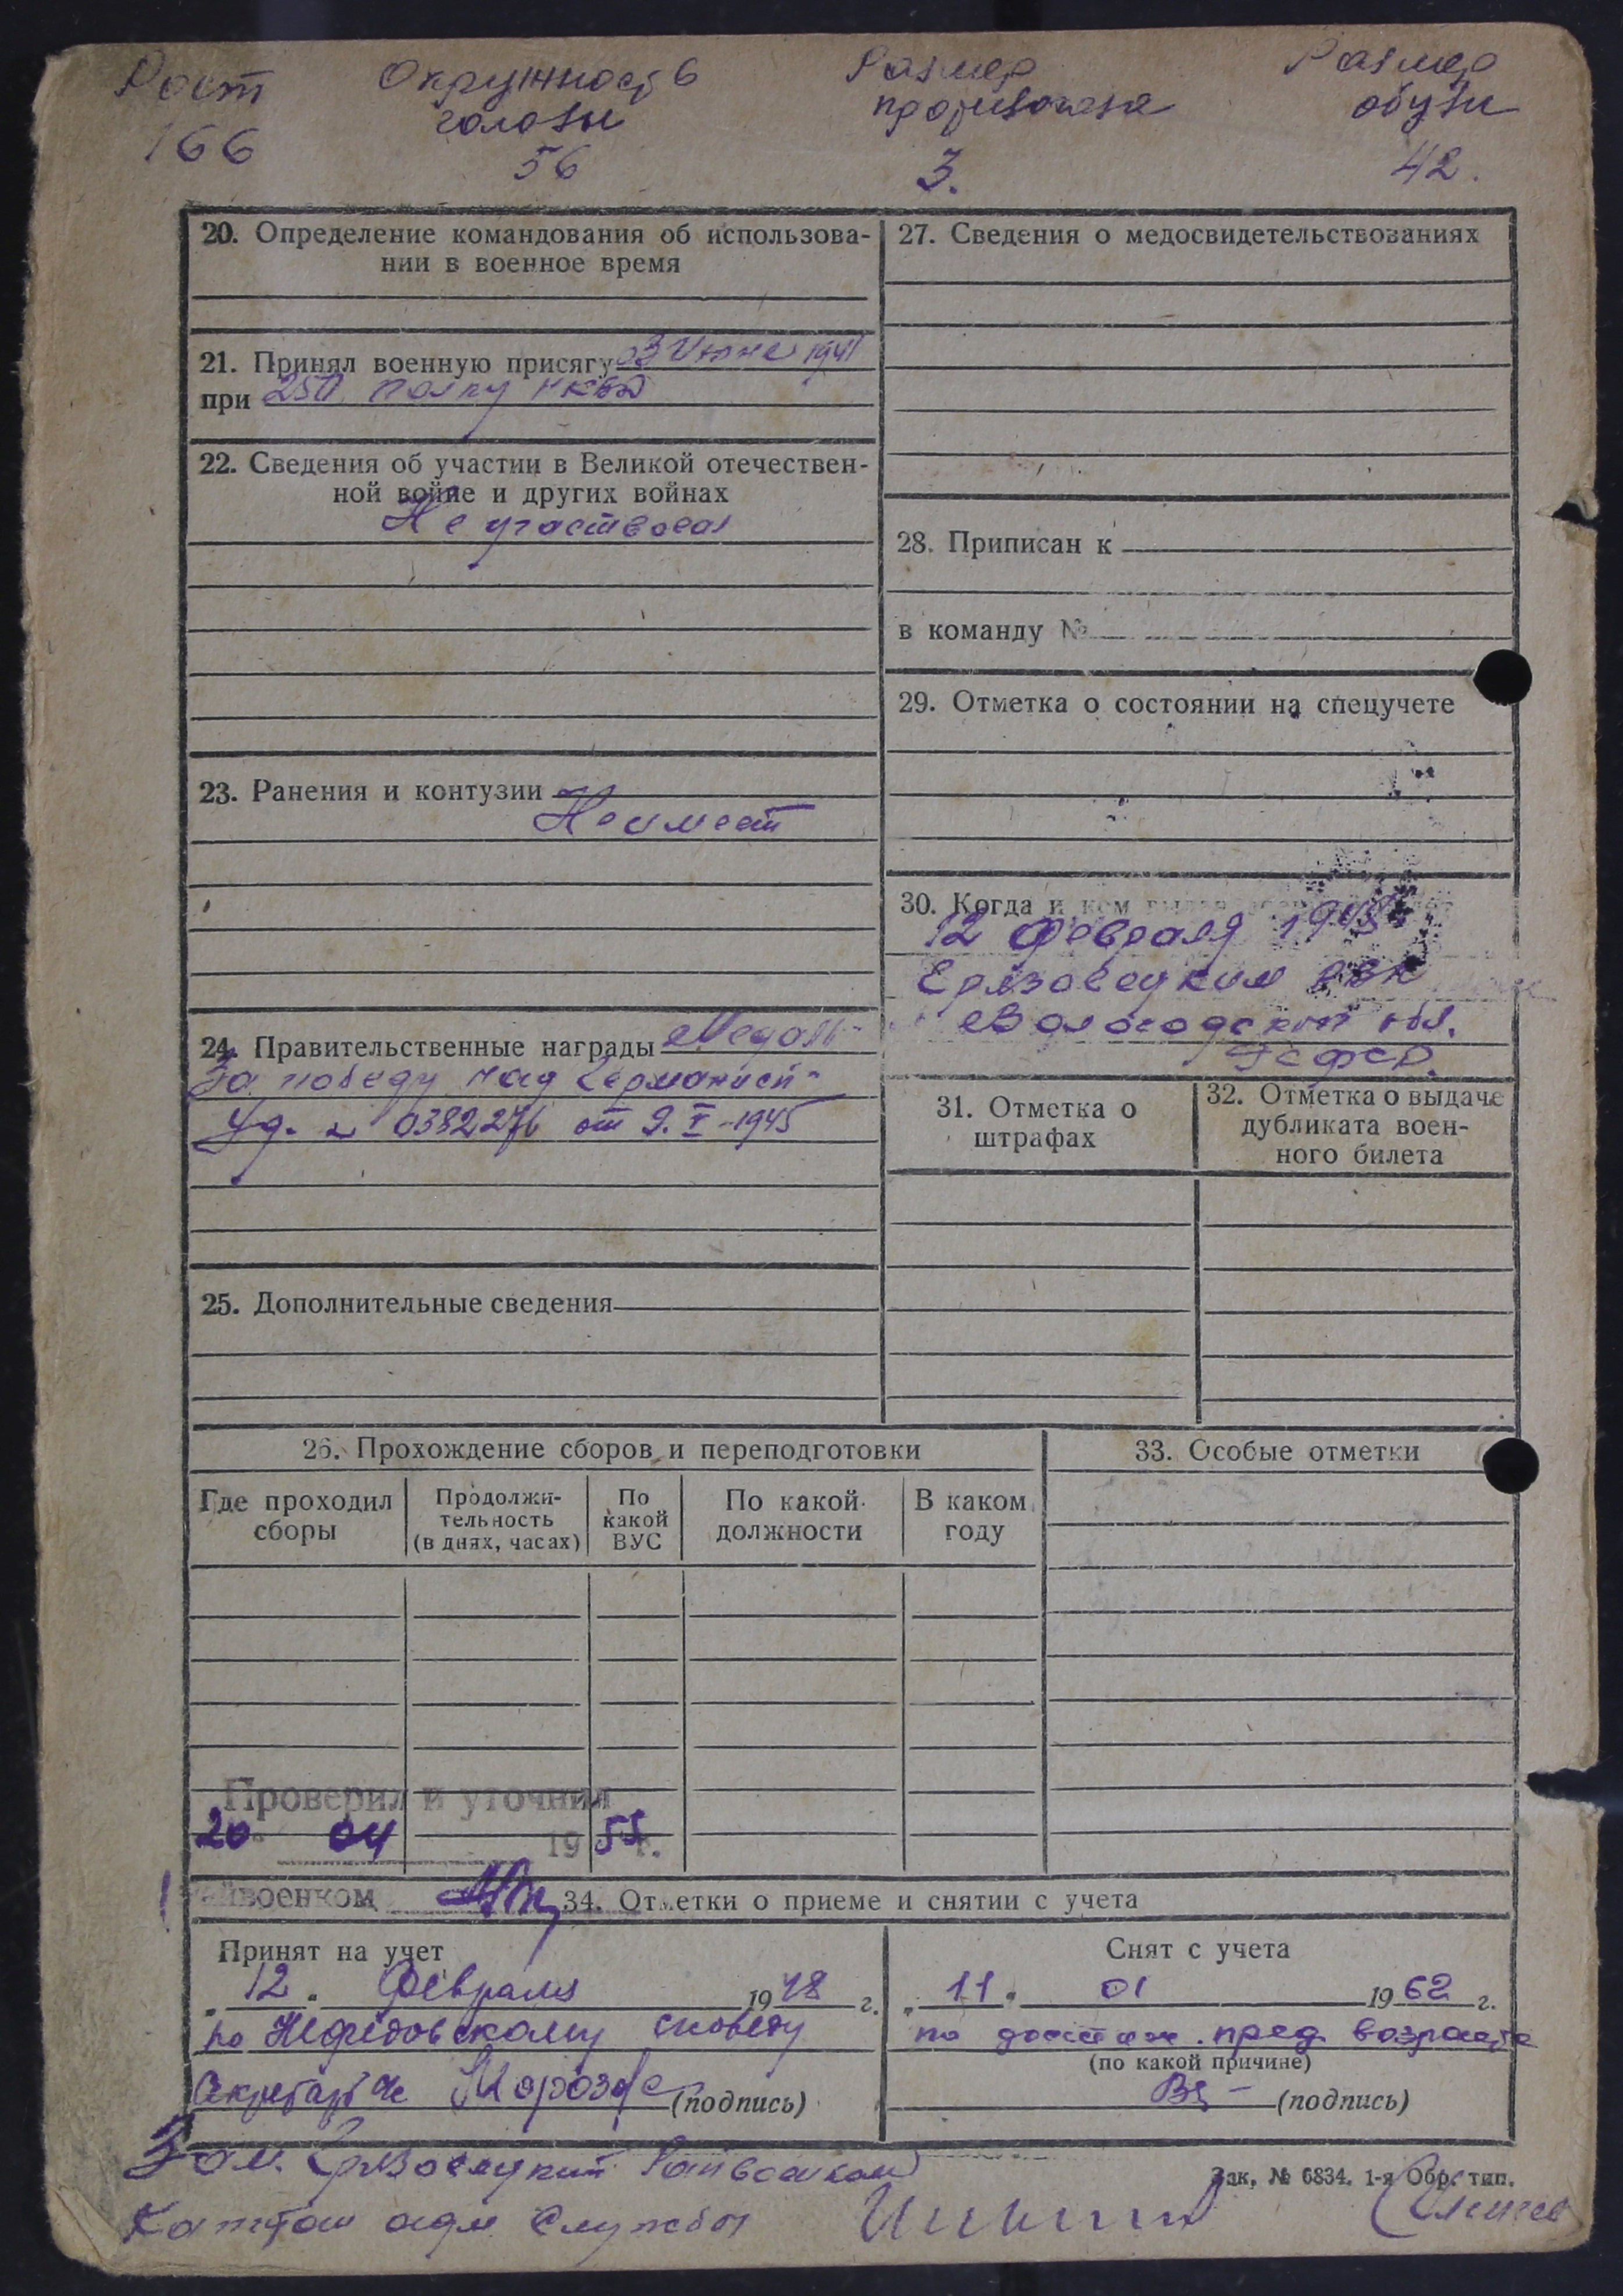 Рост
166
Окружность
головы
56
Размер
противогаза
3.
Размер
обуви
42.
20. Определение командования об использова-
нии в военное время
21. Принял военную присягу 3 Июня 1941
при 250 полку НКВД
22. Сведения об участии в Великой отечествен-
ной войне и других войнах
Не участвовал
23. Ранения и контузии
Не имеет
24. Правительственные награды Медаль
За победу над Германией
Уд. № 0382276 от 9.V-1945
25. Дополнительные сведения
27. Сведения о медосвидетельствованиях
28. Приписан к
в команду №
29. Отметка о состоянии на спецучете
30. Когда и кем
12 февраля
Грязовецким РВК
Вологодской обл.
РСФСР.
31. Отметка о
штрафах
32. Отметка о выдаче
дубликата воен-
ного билета
26. Прохождение сборов и переподготовки
Где проходил
сборы
Продолжи-
тельность
(в днях, часах)
По
какой
ВУС
По какой
должности
В каком
году
33. Особые отметки
Проверил и уточнил
20 04 1955 г.
айвоенком
34. Отметки о приеме и снятии с учета
Принят на учет
"12" Февраля 1948 г.
по Нефедовскому с/совету
Секретарь с/с Морозов (подпись)
Снят с учета
"11" 01 1962 г.
по достиж. пред. возраста
(по какой причине)
(подпись)
Зам. Грязовецкий Райвоенком
Капитан адм. службы
Зак, № 6834. 1-я Обр. тип.